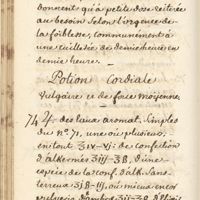 donnent qu'à petite dose réitérée
au besoin selon l'urgence de
la foiblesse, communément à
une cuillerée de demie heure en
demie heure.
Potion Cordiale
vulgaire et de force moïenne.
74 ♃. des eaux aromat. simples
du n.° 71. une ou plusieurs.
en tout ℥iv-vj: de confection
d'alkermes ʒiij-℥ß. d'une
espece de la conf. d'alk. sans
terreux ʒß-iij. ou mieux encor